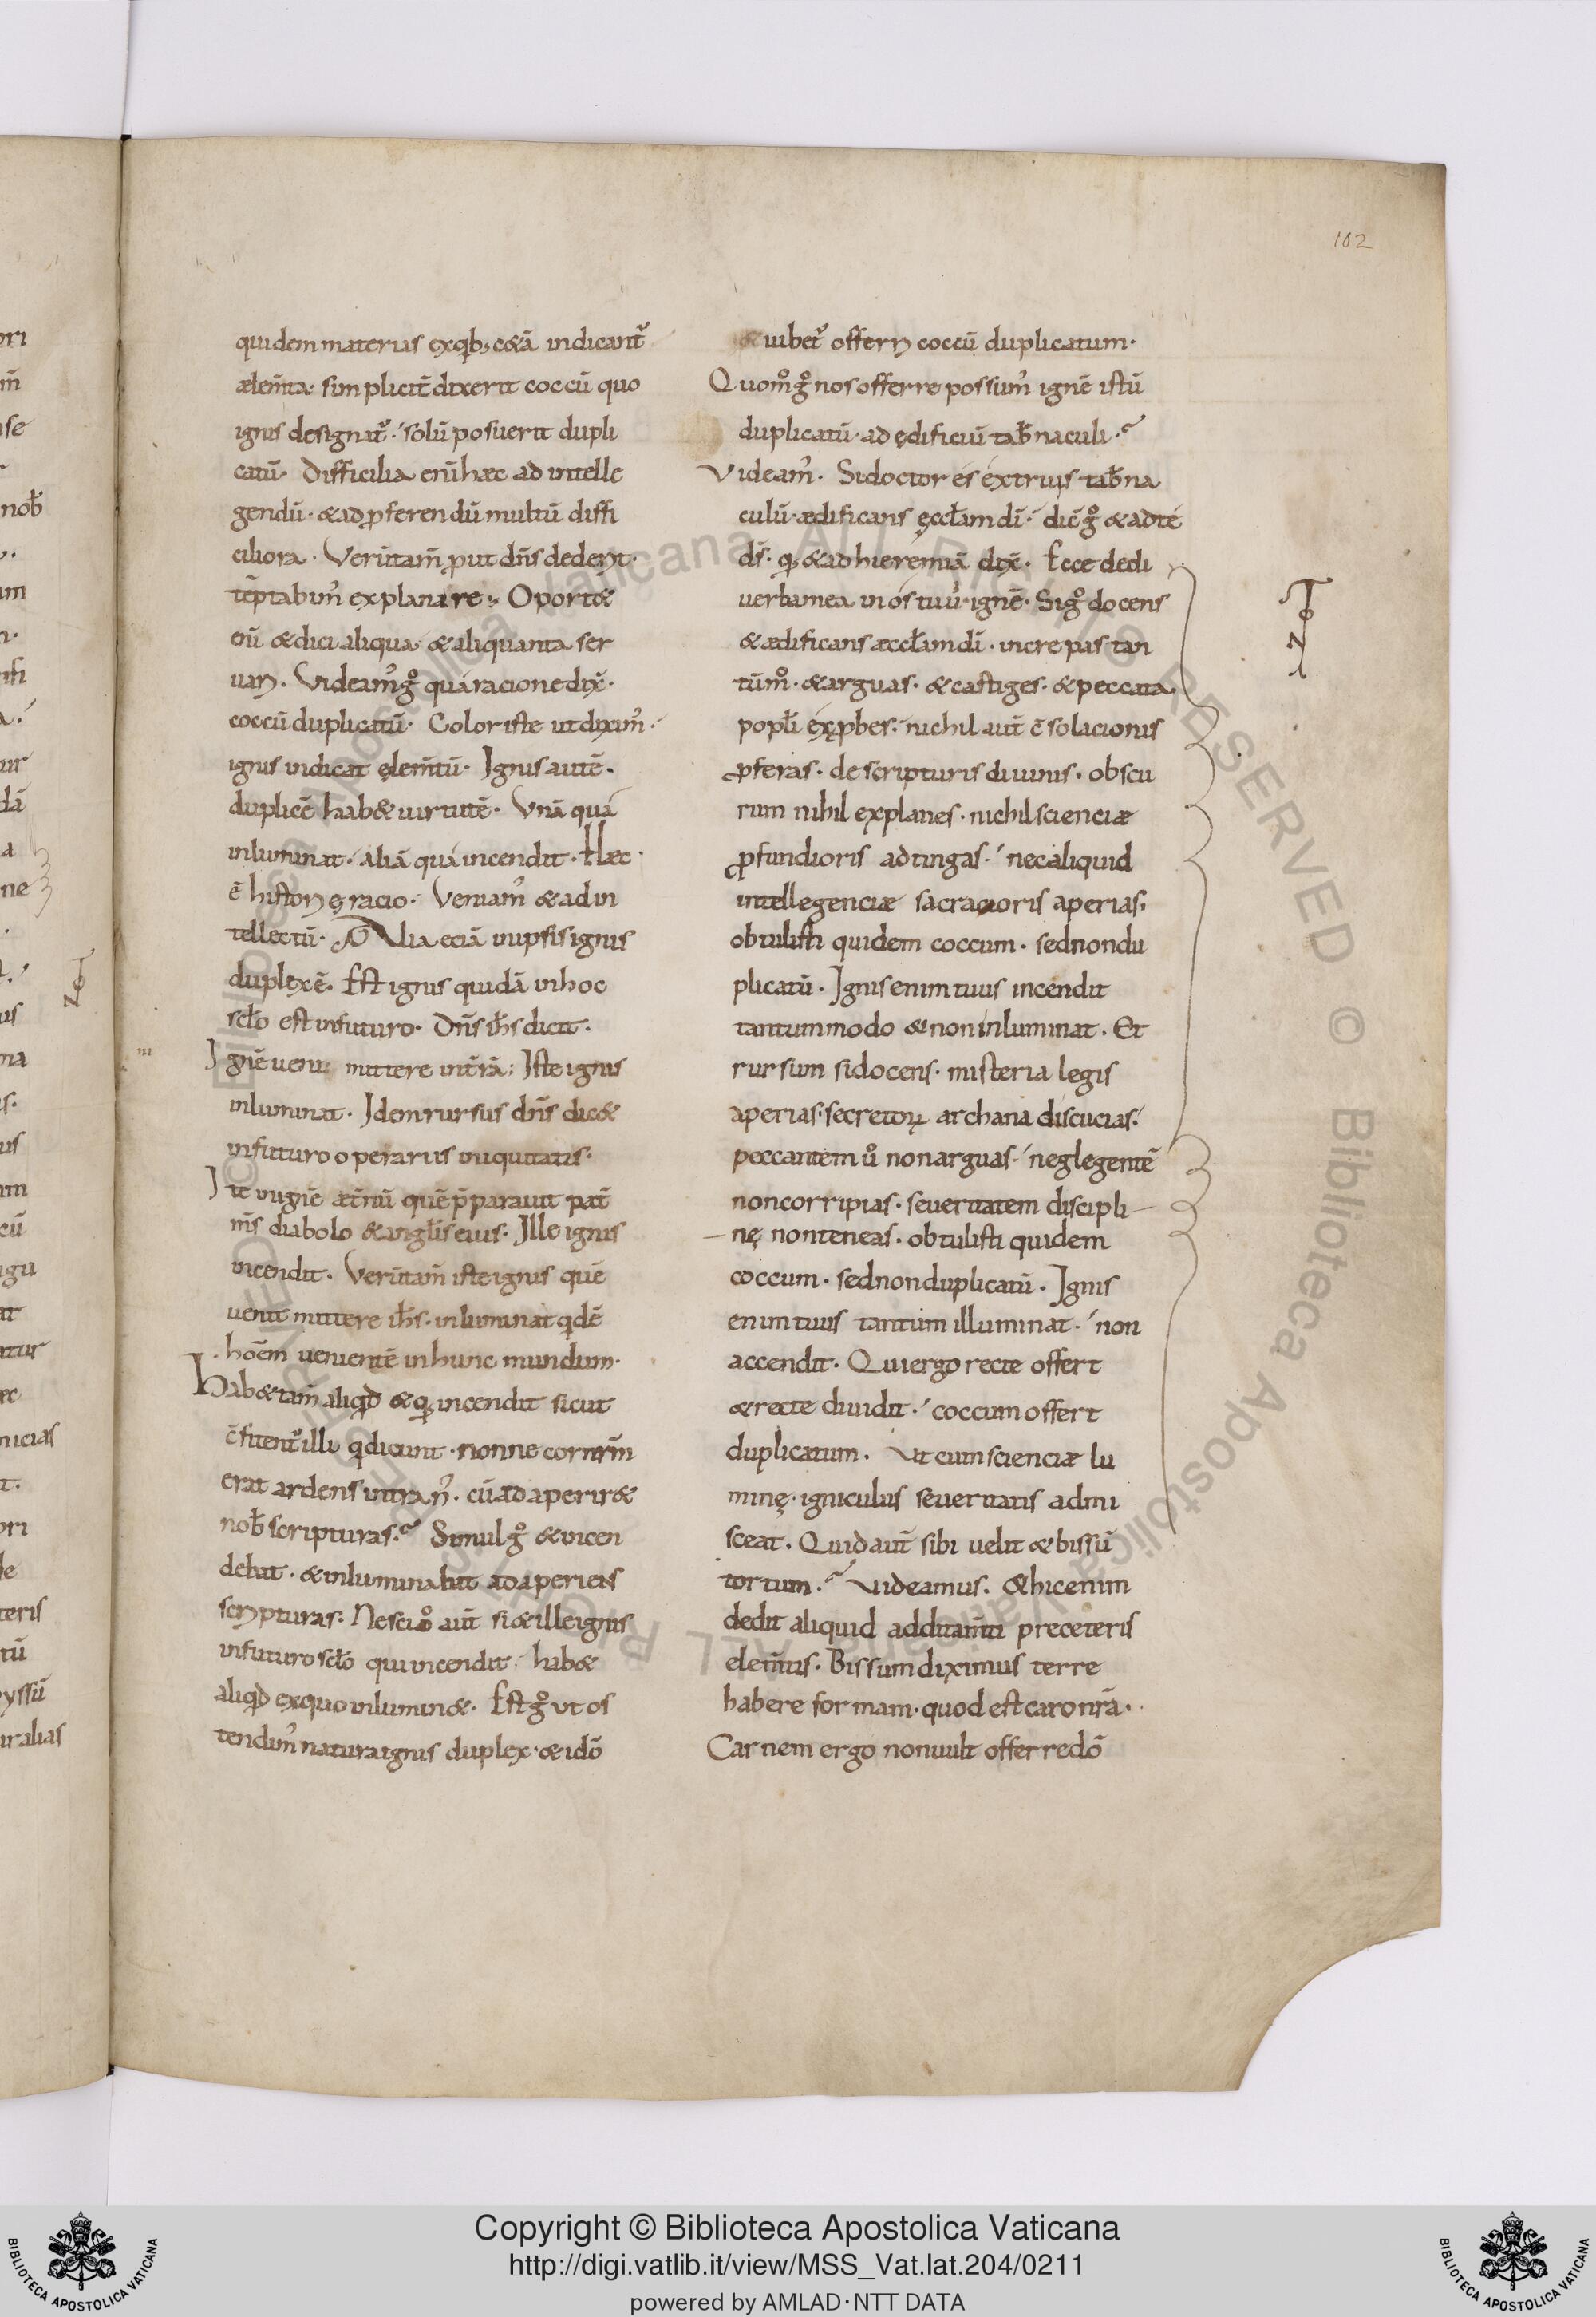 102
quidem materias exqb; cætã indicant᷑
ælem̃ta· simplicit̃ dixerit coccũ quo
ignis designat᷑·́ solũ posuerit dupli
catũ· Difficilia enĩ hæc ad intelle
gendũ· & ad ꝓferendũ multũ diffi
ciliora· Verũtam̃ ꝓut dñs dederit·
tẽptabim᷒ explanare:· Oport&
enĩ & dici aliqua· & aliquanta ser
uari· Videam᷒ gͦ quáracione dix̃·
coccũ duplicatũ· Color iste ut dixim᷒·́
ignis indicat ęlem̃tũ· Ignis autẽ·
duplicẽ hab& uirtutẽ· Vnã quá
inluminat·́ aliã quá incendit· Hæc·
ẽ historię racio· Veniam᷒ & ad in
tellectũ· Alia eciã inipsis ignis
duplex ẽ· Est ignis quidã inhoc
scło est infuturo· Dñs ihs̃ dicit·
Ignẽ ueni mittere int̃rã; Iste ignis
inluminat· Idem rursus dñs dic&
infuturo operariis iniquitatis·
Ite inignẽ æt̃nũ quẽ p̃parauit pat̃
m̃s diabolo & angłis eius· Ille ignis
incendit· Verũtam̃ iste ignis quẽ
uenit mittere ihs̃· inluminat qdẽ
·hoẽm uenientẽ inhunc mundum·
Hab& tam̃ aliqd̃ & q̣ incendit sicut
c̃fitent᷑ illi q dicunt· nonne cor nrm̃
erat ardens intra n᷒· cũ adaperir&
nob̃ scripturas? Simul gͦ & incen
debat· & inluminabat adaperiens
scripturas: Nescio aut̃ si & ille ignis
infuturo scło qui incendit· hab&
aliqd̃ exquo inlumin&· Est gͦ ut os
tendim᷒ natura ignis duplex· & idõ
& iubet᷑ offerri coccũ duplicatum·
Quom̊ gͦ nos offerre possum᷒ ignẽ istũ
duplicatũ· ad ędificiũ tab̃naculi?
Videam᷒· Si doctor es extruis tab̃na
culũ· ædificans ęccłam dĩ·́ dic̃ gͦ & adte
ds̃· q̣ & ad hieremiã dix̃· Ecce dedi
uerba mea in os tuũ· ignẽ· Si gͦ docens
& ædificans æccłam dĩ· increpas tan
tũm̊· & arguas· & castiges· & peccata
popłi exꝓbes·́ nichil aut̃ c̃solacionis
ꝓferas· de scripturis diuinis· obscu
rum nihil explanes· nichil scienciæ
ꝓfundioris adtingas·́ nec aliquid
intellegenciæ sacracioris aperias·
obtulisti quidem coccum· sed non du
plicatũ· Ignis enim tuus incendit
tantummodo & non inluminat· Et
rursum si docens· misteria legis
aperias· secretoꝝ archana discucias·́
peccantem ů non arguas·́ neglegentẽ
non corripias· seueritatem discipli
nę non teneas· obtulisti quidem
coccum· sed non duplicatũ· Ignis
enim tuus tantum illuminat·́ non
accendit· Qui ergo recte offert
& recte diuidit·́ coccum offert
duplicatum· Ut cum scienciæ lu
minę· igniculus seueritatis admi
sceat· Quid aut̃ sibi uelit & bissũ
tortum? Videamus· & hic enim
dedit aliquid additam̃ti pre ceteris
elem̃tis· Bissum diximus terre
habere formam· quod est caro nrã·
Carnem ergo non uult offerre dõ
Copyright © Biblioteca Apostolica Vaticana
http://digi.vatlib.it/view/MSS_Vat.lat.204/0211
powered by AMLAD·NTT DATA